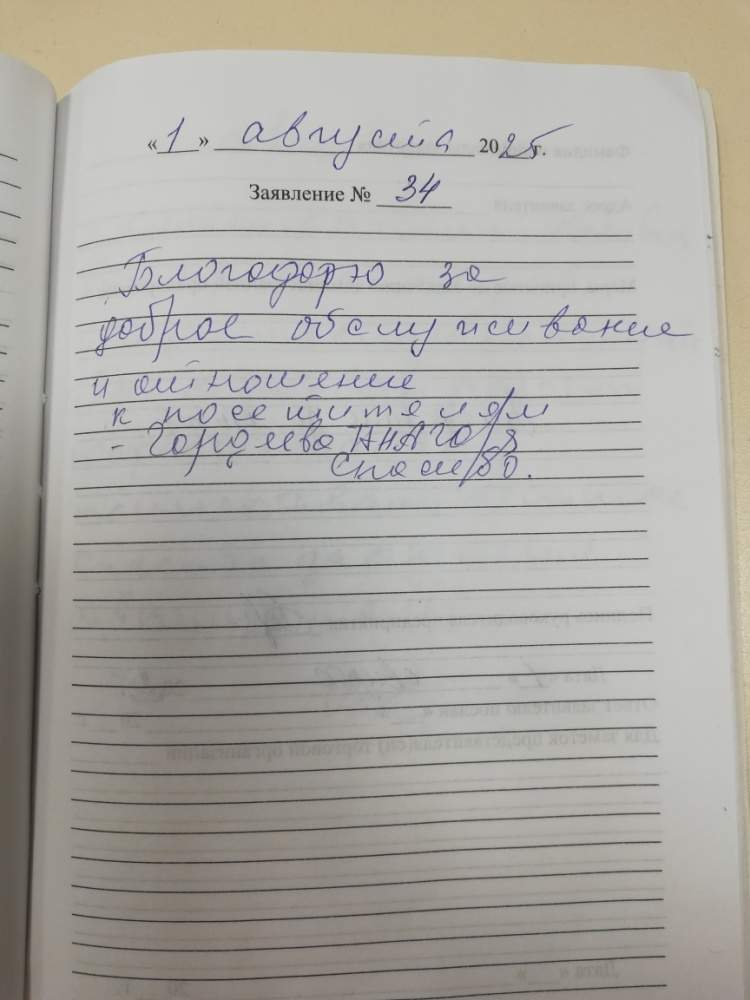 «1» августа 2025г.
Заявление № 34
Благодарю за
доброе обслуживание
и отношение
к посетителям
- Гордеева
Спасибо.